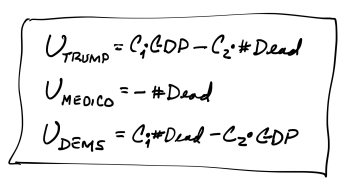 U_TRUMP = C₁·GDP - C₂·#Dead
U_MEDICO = - #Dead
U_DEMS = C₁·#Dead - C₂·GDP